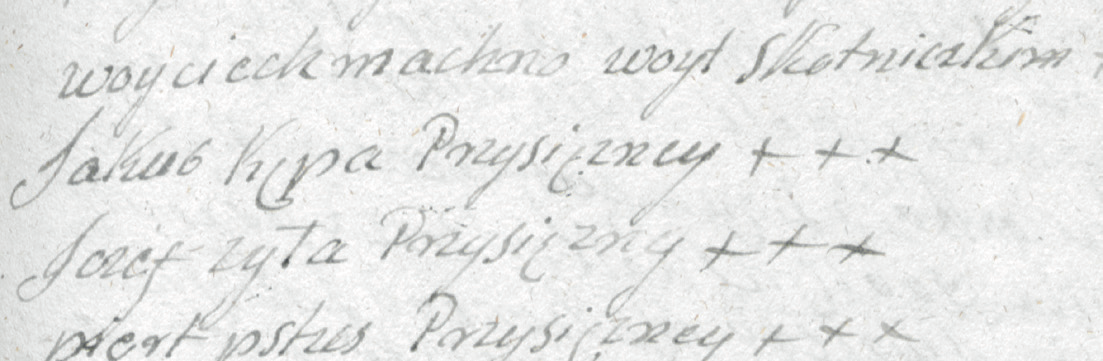 woyciech machno woyt Skotniczkim +
Jakub Kępa Przysięzney + + +
Jozef zyta Przysięzny + + +
pietr pstus Przysięzney + + +